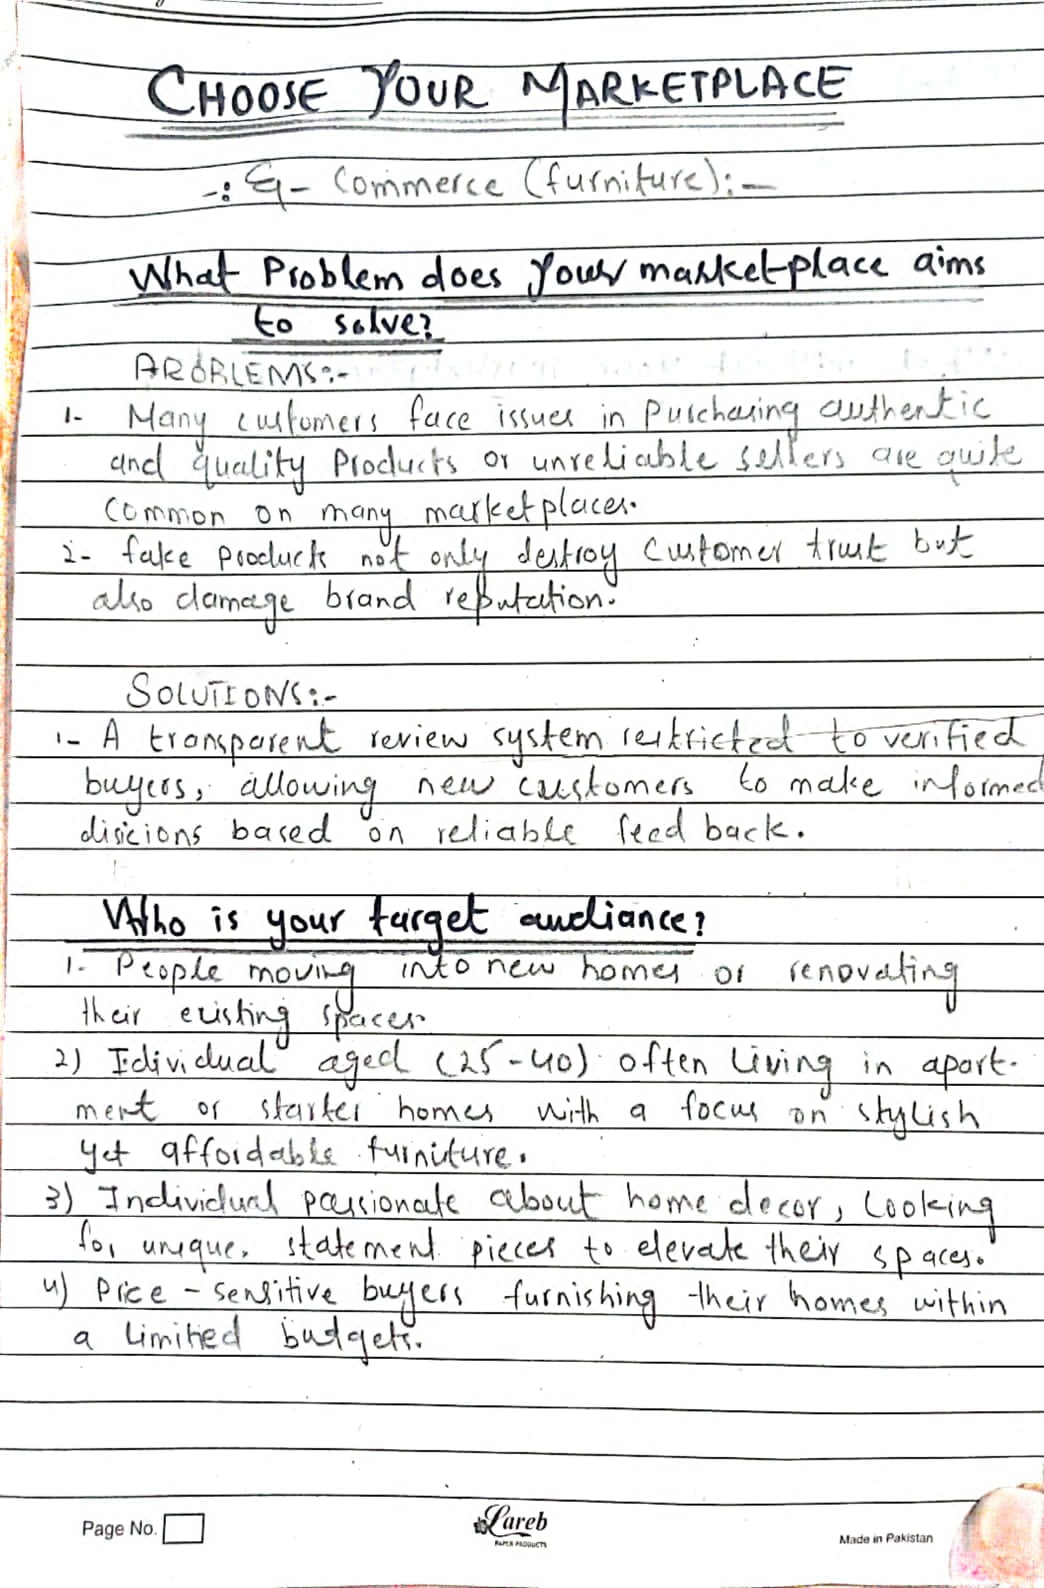 CHOOSE YOUR MARKETPLACE
-: E- Commerce (furniture):-
What Problem does your marketplace aims
to solve?
PROBLEMS:-
1- Many customers face issues in purchasing authentic
and quality Products or unreliable sellers are quite
common on many marketplaces.
2- fake products not only destroy customer trust but
also damage brand reputation.
SOLUTIONS:-
1- A transparent review system restricted to verified
buyers, allowing new customers to make informed
disicions based on reliable feed back.
Who is your target audiance?
1- People moving into new homes or renovating
their existing spaces
2) Idividual aged (25-40) often living in apart-
ment or starter homes with a focus on stylish
yet affordable furniture.
3) Individual passionate about home decor, looking
for unique, statement pieces to elevate their spaces.
4) Price - sensitive buyers furnishing their homes within
a limited budgets.
Page No.
Lareb
PAPER PRODUCTS
Made in Pakistan